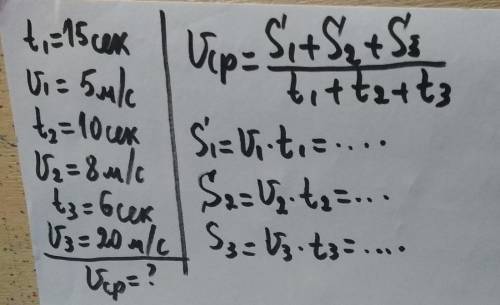 t₁=15сек
υ₁=5м/с
t₂=10сек
υ₂=8м/с
t₃=6сек
υ₃=20м/с
υср=?
υср=S₁+S₂+S₃/t₁+t₂+t₃
S₁=υ₁·t₁=....
S₂=υ₂·t₂=...
S₃=υ₃·t₃=....